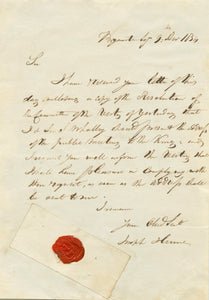 Sir
I have received your letter of this
day enclosing a copy of the Resolution of
the Committee of the Meeting of Yesterday, that
I & Sir S Whalley should present the Address
of the public Meeting to the King, and
I request you will inform the Meeting that
I shall have pleasure in complying with
their request, as soon as the Address shall
be sent to me.
I remain
Your Obed Servt
Joseph Hume